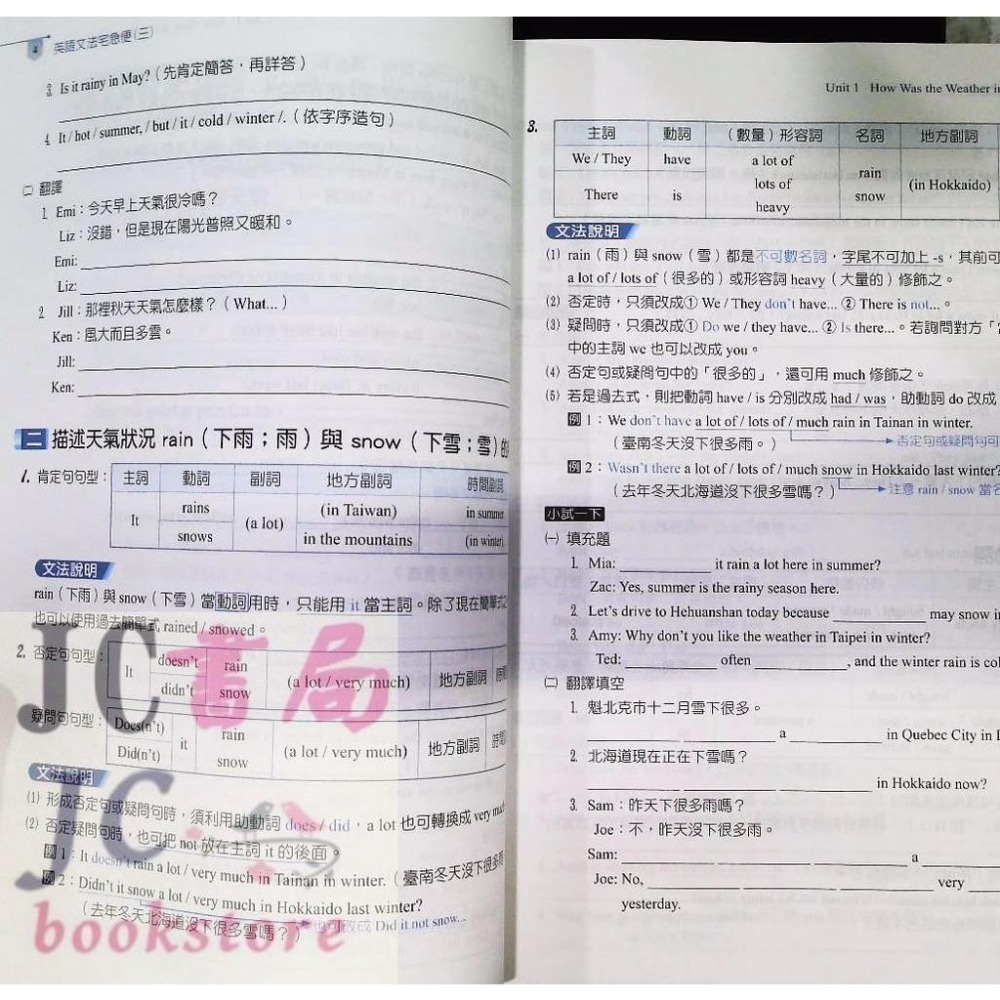 4 英語文法宅急便(三)
3. Is it rainy in May?(先肯定簡答,再詳答)
4. It / hot / summer, / but / it / cold / winter /.(依字序造句)
㈡ 翻譯
1. Emi:今天早上天氣很冷嗎?
Liz:沒錯,但是現在陽光普照又暖和。
Emi:
Liz:
2. Jill:那裡秋天天氣怎麼樣?(What...)
Ken:風大而且多雲。
Jill:
Ken:
二 描述天氣狀況 rain(下雨;雨)與 snow(下雪;雪)的
1. 肯定句句型:
主詞 動詞 副詞 地方副詞 時間副詞
It rains snows (a lot) (in Taiwan) in the mountains in summer (in winter)
文法說明
rain(下雨)與 snow(下雪)當動詞用時,只能用 it 當主詞。除了現在簡單式
也可以使用過去簡單式 rained / snowed。
2. 否定句句型:
It doesn't didn't rain snow (a lot / very much) 地方副詞
疑問句句型:
Does(n't) Did(n't) it rain snow (a lot / very much) 地方副詞
文法說明
(1) 形成否定句或疑問句時,須利用助動詞 does / did,a lot 也可轉換成 very much
(2) 否定疑問句時,也可把 not 放在主詞 it 的後面。
例1:It doesn't rain a lot / very much in Tainan in winter.(臺南冬天沒下很多雨
例2:Didn't it snow a lot / very much in Hokkaido last winter?
(去年冬天北海道沒下很多雪嗎?) 也可改成 Did it not snow...
JC書局
JC
bookstore
Unit 1 How Was the Weather in
3.
主詞 動詞 (數量)形容詞 名詞 地方副詞
We / They have a lot of
There is lots of heavy rain snow (in Hokkaido)
文法說明
(1) rain(雨)與 snow(雪)都是不可數名詞,字尾不可加上 -s,其前可
a lot of / lots of(很多的)或形容詞 heavy(大量的)修飾之。
(2) 否定時,只須改成① We / They don't have... ② There is not...。
(3) 疑問時,只須改成① Do we / they have... ② Is there...。若詢問對方「
中的主詞 we 也可以改成 you。
(4) 否定句或疑問句中的「很多的」,還可用 much 修飾之。
(5) 若是過去式,則把動詞 have / is 分別改成 had / was,助動詞 do 改成
例1:We don't have a lot of / lots of / much rain in Tainan in winter.
(臺南冬天沒下很多雨。) 否定句或疑問句可
例2:Wasn't there a lot of / lots of / much snow in Hokkaido last winter?
(去年冬天北海道沒下很多雪嗎?) 注意 rain / snow 當名
小試一下
㈠ 填充題
1. Mia: it rain a lot here in summer?
Zac: Yes, summer is the rainy season here.
2. Let's drive to Hehuanshan today because may snow in
3. Amy: Why don't you like the weather in Taipei in winter?
Ted: often , and the winter rain is col
㈡ 翻譯填空
1. 魁北克市十二月雪下很多。
a in Quebec City in
2. 北海道現在正在下雪嗎?
in Hokkaido now?
3. Sam:昨天下很多雨嗎?
Joe:不,昨天沒下很多雨。
Sam: a
Joe: No, very
yesterday.